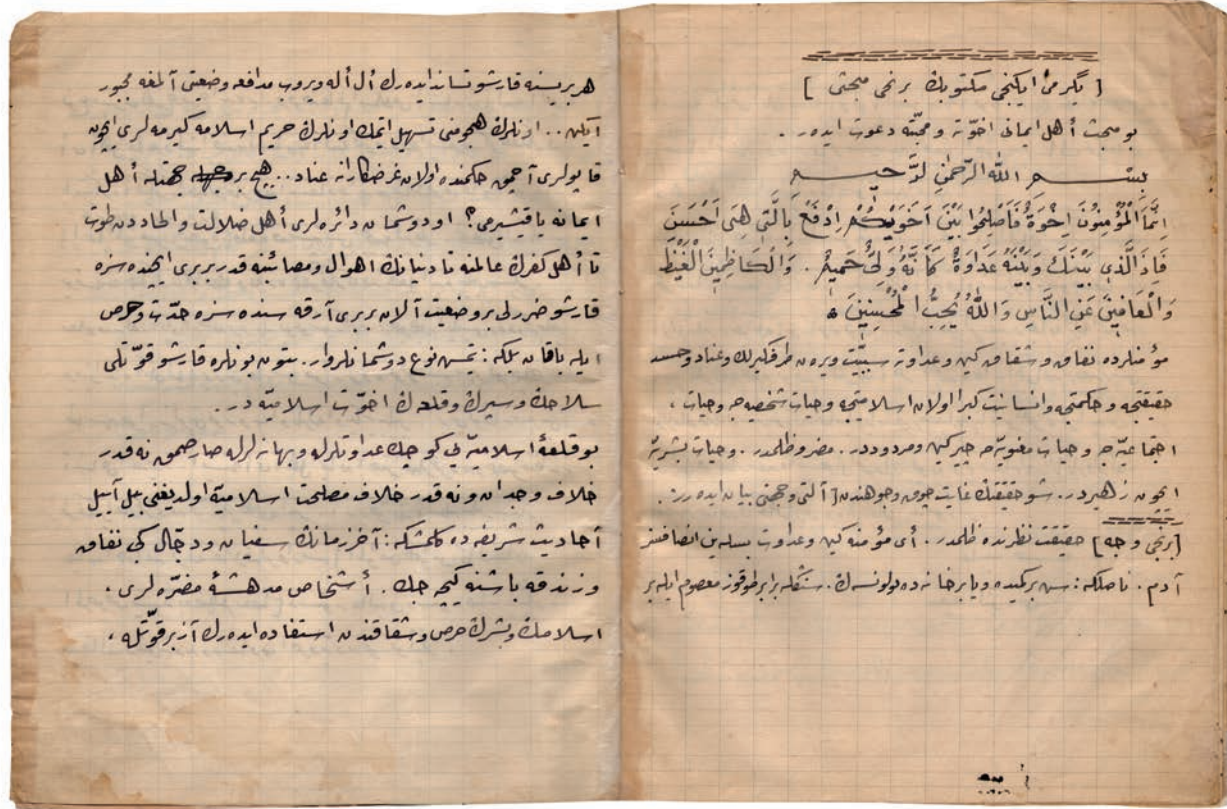 [ يگرمی ايكنجی مكتوبك برنجی مبحثی ]
بو مبحث أهل ايمانی اخوّته ومحبّته دعوت ايدەر .
بِسْمِ اللهِ الرَّحْمٰنِ الرَّحِيمِ
اِنَّمَا الْمُؤْمِنُونَ اِخْوَةٌ فَاَصْلِحُوا بَيْنَ اَخَوَيْكُمْ اِدْفَعْ بِالَّتِى هِىَ اَحْسَنُ
فَاِذَا الَّذِى بَيْنَكَ وَبَيْنَهُ عَدَاوَةٌ كَاَنَّهُ وَلِىٌّ حَمِيمٌ . وَالْكَاظِمِينَ الْغَيْظَ
وَالْعَافِينَ عَنِ النَّاسِ وَاللهُ يُحِبُّ الْمُحْسِنِينَ
مؤمنلرده نفاق و شقاق كين وعداوته سببيّت ويرەن طرفكيرلك وعناد وحسد
حقيقتجه و حكمتجه وانسانيت كبرا اولان اسلاميتجه وحيات شخصيه جه وحيات ،
اجتماعيّه جه و حيات معنويّه جه چيركين ومردوددر . مضر وظلمدر . وحيات بشريّه
ايچون زهيردر . شو حقيقتك غايت چوق وجوهندن [ آلتی وجهنی بيان ايدەرز .
[ برنجی وجه ] حقيقت نظرنده ظلمدر . أی مؤمنه كين وعداوت بسله ين انصافسز
آدم . ناصلكه : سن بر كميده ويا بر خانه ده بولونسه ك . سنكله برابر طوقوز معصوم ايله بر
هر بريسنه قارشو تساند ايدەرك أل أله ويروب مدافعه وضعيتی آلمغه مجبور
ايكن . . اونلرك هجومنی تسهيل ايتمك اونلرك حريم اسلامه كيرمه لری ايچون
قاپولری آچمق حكمنده اولان غرضكارانه عناد . . هيچ بر جهتله أهل
ايمانه ياقيشيرمی ؟ او دوشمان دائره لری أهل ضلالت والحاددن طوت
تا أهل كفرك عالمنه تا دنيانك اهوال ومصائبنه قدر بربری ايچنده سزه
قارشو ضررلی بر وضعيت آلان بربری آرقه سنده سزه حدّت وحرص
ايله باقان بلكه : يتمش نوع دوشمانلر وار . بتون بونلره قارشو قوّتلی
سلاحك وسيرك وقلعه ك اخوّت اسلاميّه در .
بو قلعهٔ اسلاميّه يی كوچك عداوتلرله وبهانه لرله صارصمق نه قدر
خلاف وجدان ونه قدر خلاف مصلحت اسلاميّه اولديغنی بيل آييل
أحاديث شريفه ده كلمشكه : آخر زمانك سفيان و دجّال كبی نفاق
وزندقه باشنه كيچه جك . أشخاص مدهشهٔ مضرّه لری ،
اسلامك وبشرك حرص وشقاقندن استفاده ايدەرك آز بر قوّتله ،